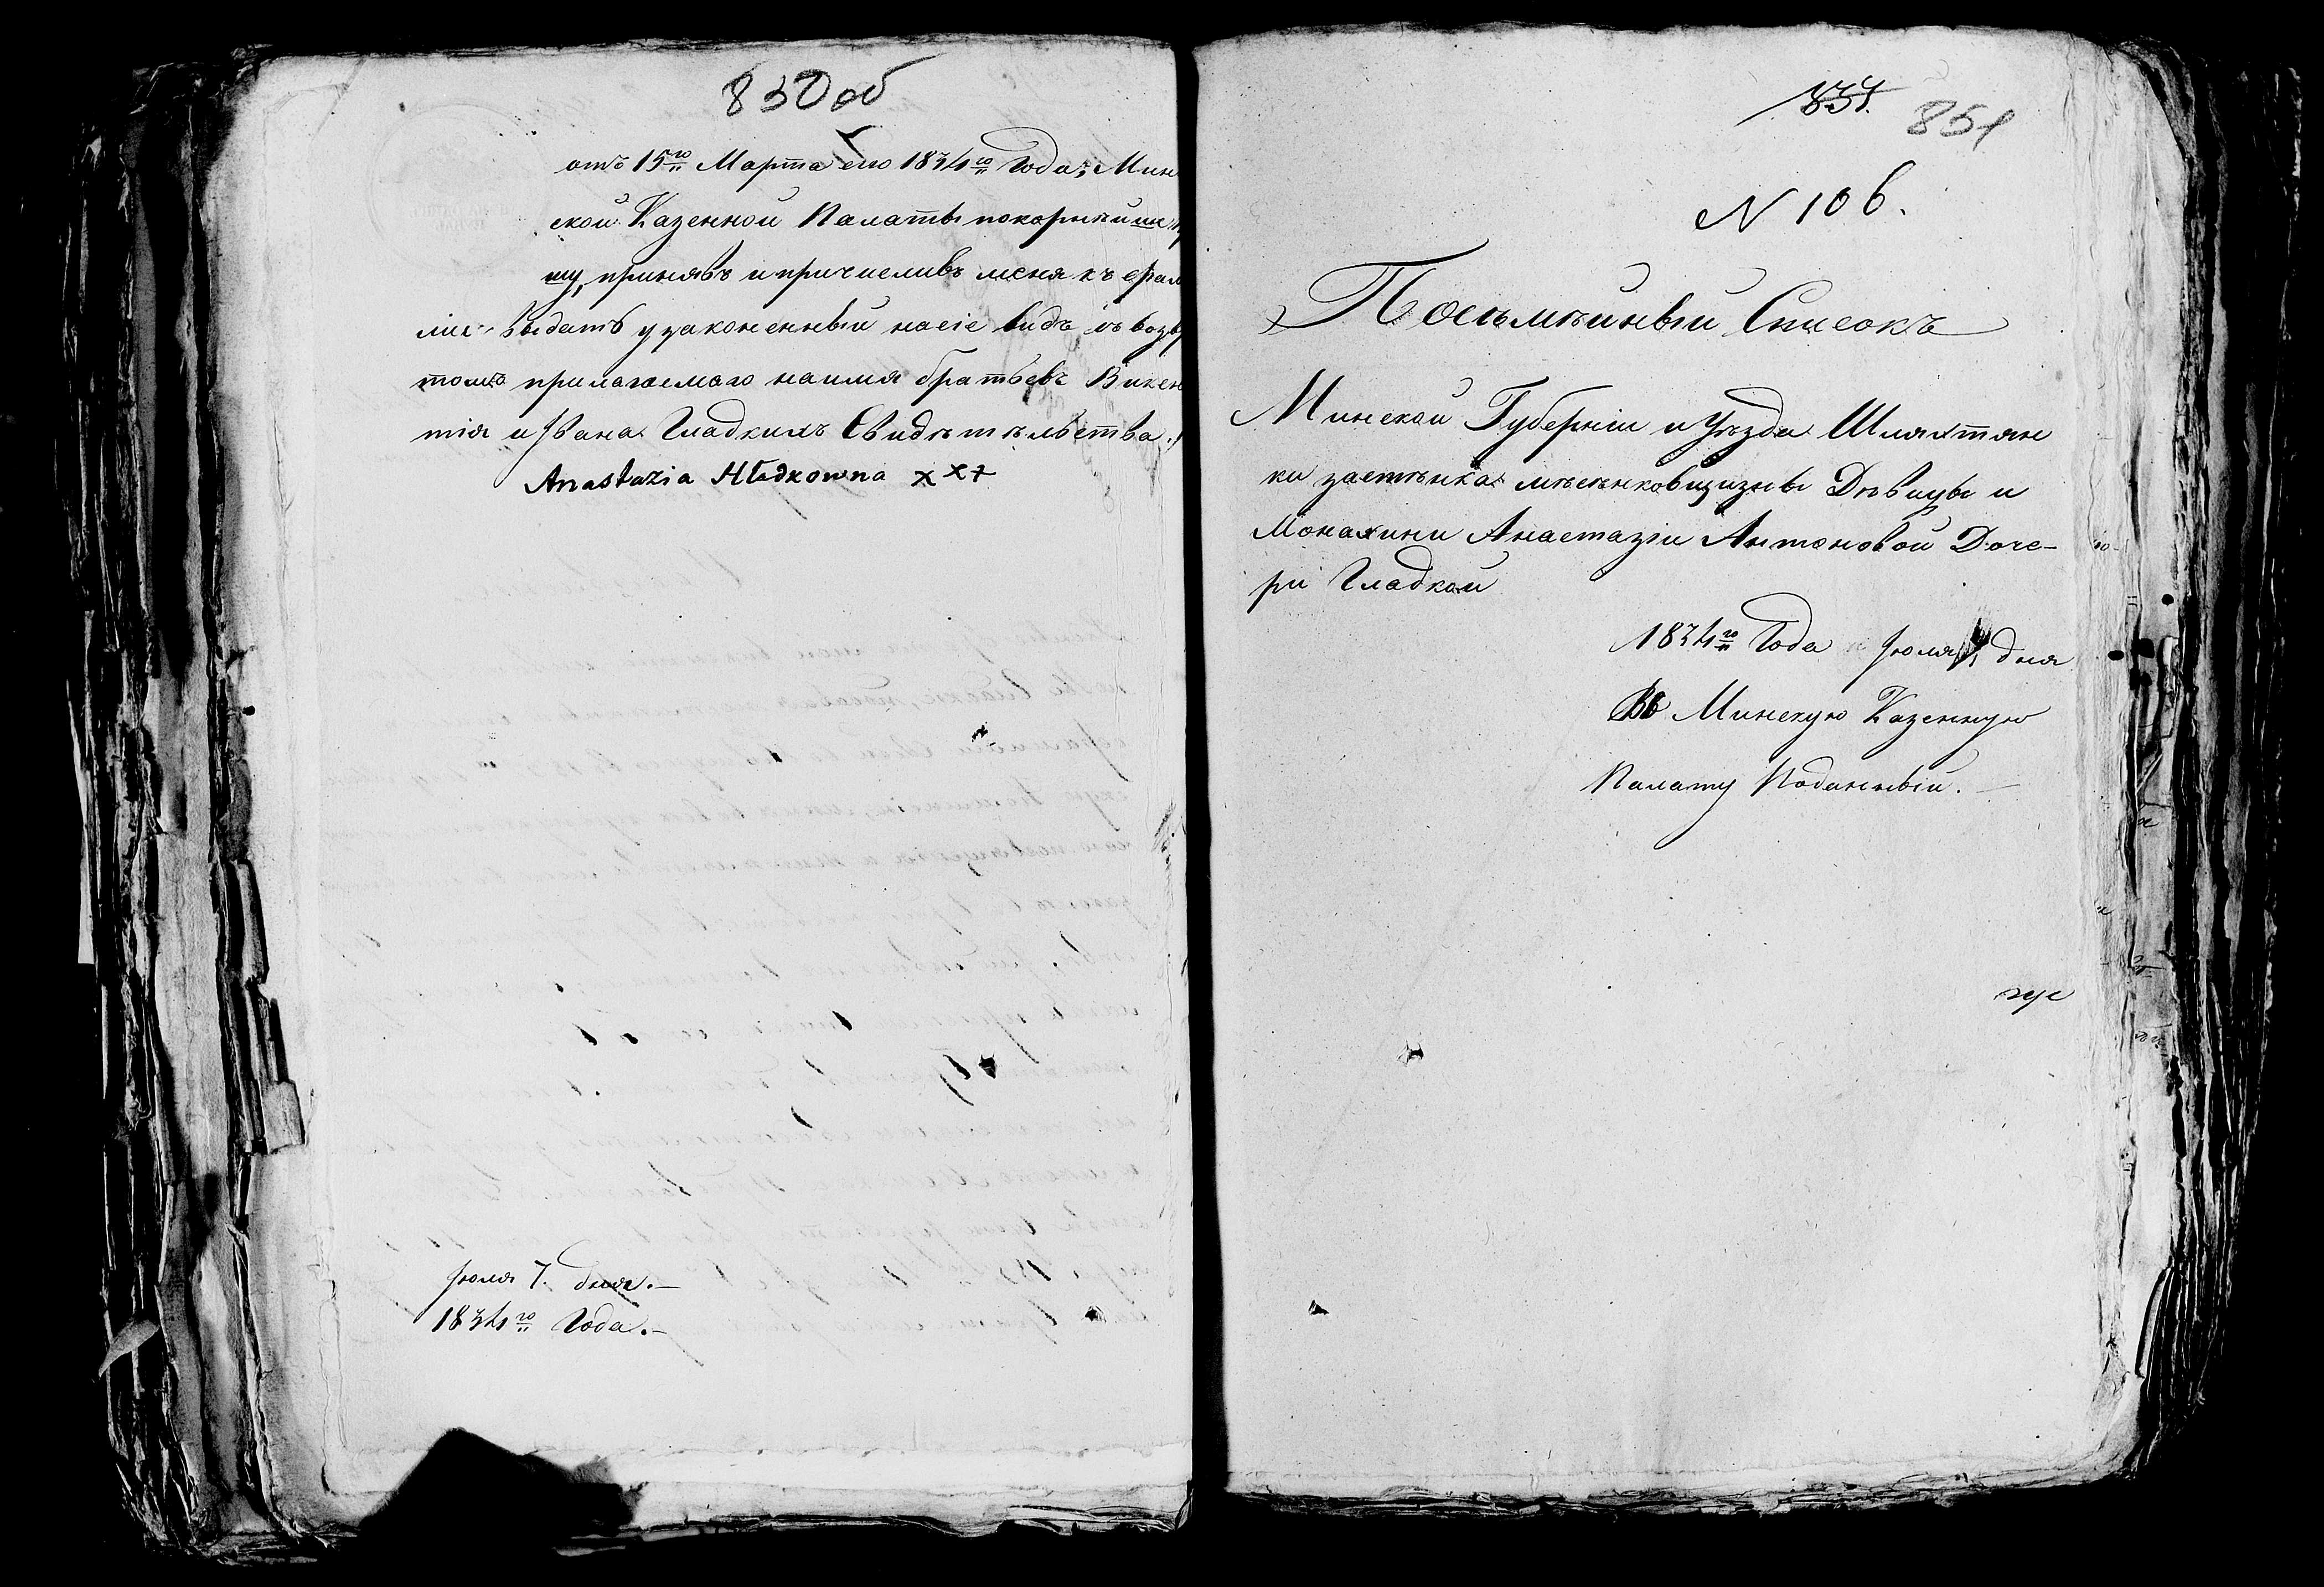 850 об
отъ 15го Марта сего 1834го Года; Мин
ской Казенной Палаты покорнѣйше
шу, принявъ и причисливъ меня къ фам
иліи выдать узаконенный на сіе видъ, съ возвр
томъ прилагаемаго на имя братьевъ Викен
тія и Ивана Гладкихъ Свидѣтѣльства.
Anastazia Hładkowna xx+
Іюля 7. дня.—
1834го Года.—
851
N 106.
Посѣмѣйный Списокъ
Минской Губерніи и Уѣзда Шляхтян
ки застѣнка Дѣвицы и
Монахини Анастазіи Антоновой Доче-
ри Гладкой
1834го Года Іюля дня
Въ Минскую Казенную
Палату Поданный.—